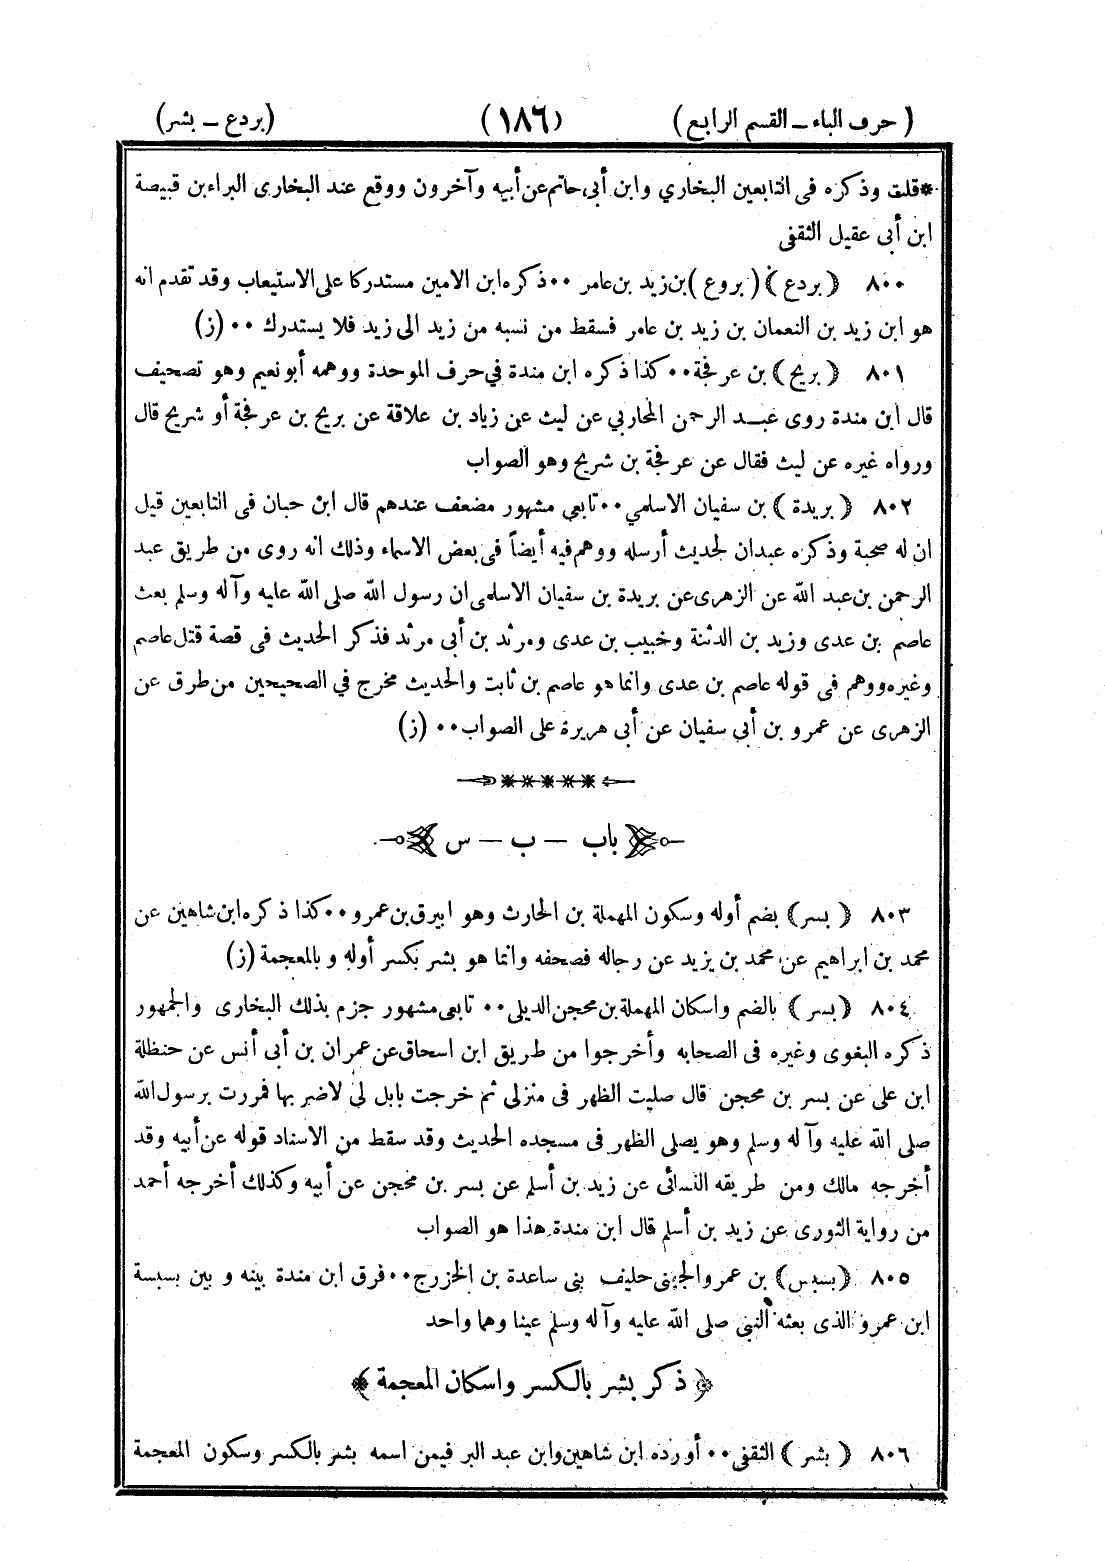 ( حرف الباء ــ القسم الرابع ) (١٨٦) (بردع ــ بشر)
*قلت وذكره فى التابعين البخاري وابن أبى حاتم عن أبيه وآخرون ووقع عند البخارى البراء بن قبيصة
ابن أبى عقيل الثقفى
٨٠٠ ﴿بردع﴾ (بروع) بن زيد بن عامر ٠٠ ذكره ابن الامين مستدركا على الاستيعاب وقد تقدم انه
هو ابن زيد بن النعمان بن زيد بن عامر فسقط من نسبه من زيد الى زيد فلا يستدرك ٠٠ (ز)
٨٠١ ﴿بريح﴾ بن عرفجة ٠٠ كذا ذكره ابن مندة في حرف الموحدة ووهمه أبو نعيم وهو تصحيف
قال ابن مندة روى عبد الرحمن المحاربي عن ليث عن زياد بن علاقة عن بريح بن عرفجة أو شريح قال
ورواه غيره عن ليث فقال عن عرفجة بن شريح وهو الصواب
٨٠٢ ﴿بريدة﴾ بن سفيان الاسلمي ٠٠ تابعي مشهور مضعف عندهم قال ابن حبان فى التابعين قيل
ان له صحبة وذكره عبدان لحديث أرسله ووهم فيه أيضاً فى بعض الاسماء وذلك انه روى من طريق عبد
الرحمن بن عبد الله عن الزهرى عن بريدة بن سفيان الاسلمى ان رسول الله صلى الله عليه وآله وسلم بعث
عاصم بن عدى وزيد بن الدثنة وخبيب بن عدى ومرثد بن أبى مرثد فذكر الحديث فى قصة قتل عاصم
وغيره ووهم فى قوله عاصم بن عدى وانما هو عاصم بن ثابت والحديث مخرج في الصحيحين من طرق عن
الزهرى عن عمرو بن أبي سفيان عن أبى هريرة على الصواب ٠٠ (ز)
باب — ب — س
٨٠٣ ﴿بسر﴾ بضم أوله وسكون المهملة بن الحارث وهو ابيرق بن عمرو ٠٠ كذا ذكره ابن شاهين عن
محمد بن ابراهيم عن محمد بن يزيد عن رجاله فصحفه وانما هو بشر بكسر أوله وبالمعجمة (ز)
٨٠٤ ﴿بسر﴾ بالضم واسكان المهملة بن محجن الديلى ٠٠ تابعى مشهور جزم بذلك البخارى والجمهور
ذكره البغوى وغيره فى الصحابه وأخرجوا من طريق ابن اسحاق عن عمران بن أبى أنس عن حنظلة
ابن على عن بسر بن محجن قال صليت الظهر فى منزلى ثم خرجت بابل لى لاضر بها فمررت برسول الله
صلى الله عليه وآله وسلم وهو يصلى الظهر فى مسجده الحديث وقد سقط من الاسناد قوله عن أبيه وقد
أخرجه مالك ومن طريقه النسائى عن زيد بن أسلم عن بسر بن محجن عن أبيه وكذلك أخرجه أحمد
من رواية الثورى عن زيد بن أسلم قال ابن مندة هذا هو الصواب
٨٠٥ ﴿بسبس﴾ بن عمرو الجهنى حليف بنى ساعدة بن الخزرج ٠٠ فرق ابن مندة بينه و بين بسبسة
ابن عمرو الذى بعثه النبى صلى الله عليه وآله وسلم عينا وهما واحد
﴿ ذكر بشر بالكسر واسكان المعجمة ﴾
٨٠٦ ﴿بشر﴾ الثقفى ٠٠ أورده ابن شاهين وابن عبد البر فيمن اسمه بشر بالكسر وسكون المعجمة